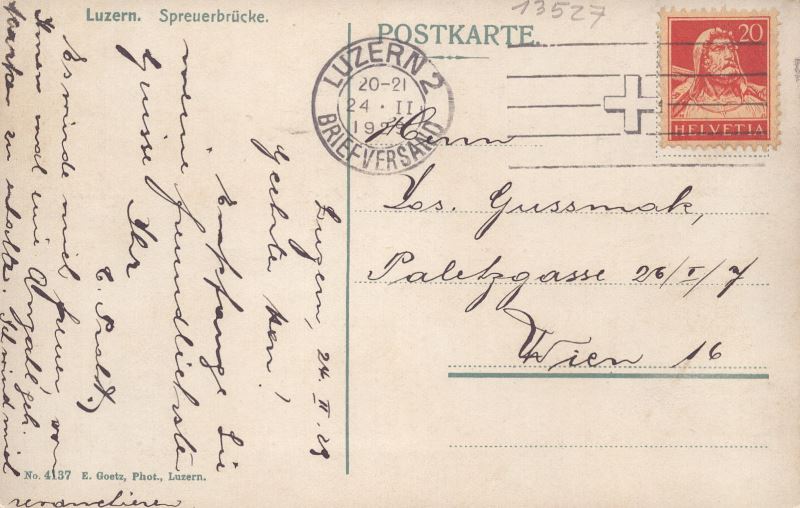 13527
Luzern. Spreuerbrücke.
POSTKARTE.
LUZERN 2
20-21
24 · II
BRIEFVERSAND
20
HELVETIA
Herrn
Jos. Gussmak,
Paletzgasse 26/I/7
Wien 16
Luzern, 24. II. 29
Geehrter Herr!
Empfange Sie
meine freundlichsten
Grüsse
Ihr
Es würde mich freuen, von
Ihnen mal eine Anzahl geb.
Marken zu erhalten. Ich würd mich
revanchieren
No. 4137 E. Goetz, Phot., Luzern.